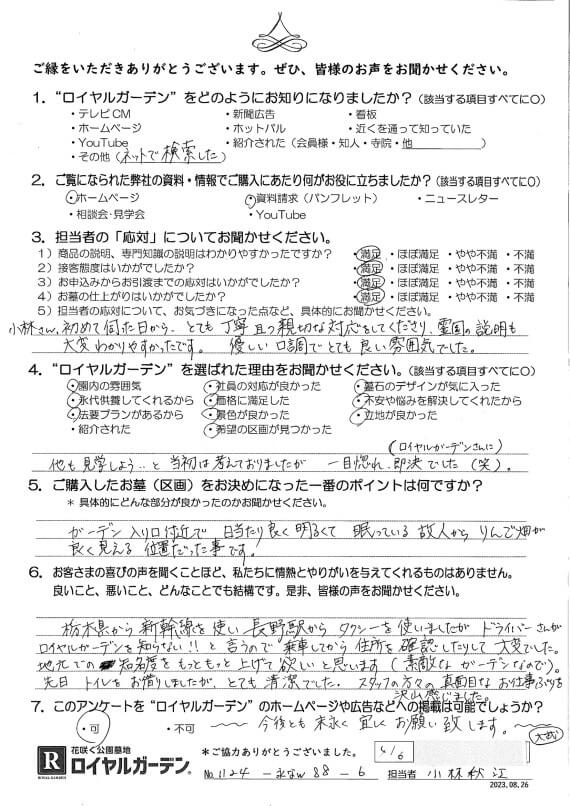 ご縁をいただきありがとうございます。ぜひ、皆様のお声をお聞かせください。
1. “ロイヤルガーデン”をどのようにお知りになりましたか?(該当する項目すべてに○)
・テレビCM ・新聞広告 ・看板
・ホームページ ・ホットパル ・近くを通って知っていた
・YouTube ・紹介された(会員様・知人・寺院・他 )
・その他(ネットで検索した)
2. ご覧になられた弊社の資料・情報でご購入にあたり何がお役に立ちましたか?(該当する項目すべてに○)
・ホームページ ・資料請求(パンフレット) ・ニュースレター
・相談会・見学会 ・YouTube
3. 担当者の「応対」についてお聞かせください。
1)商品の説明、専門知識の説明はわかりやすかったですか? ・満足 ・ほぼ満足 ・やや不満 ・不満
2)接客態度はいかがでしたか? ・満足 ・ほぼ満足 ・やや不満 ・不満
3)お申込みからお引渡までの応対はいかがでしたか? ・満足 ・ほぼ満足 ・やや不満 ・不満
4)お墓の仕上がりはいかがでしたか? ・満足 ・ほぼ満足 ・やや不満 ・不満
5)担当者の応対について、お気づきになった点など、具体的にお聞かせください。
小林さん、初めて伺った日から、とても丁寧且つ親切な対応をしてくださり、霊園の説明も
大変わかりやすかったです。 優しい口調でとても良い雰囲気でした。
4. “ロイヤルガーデン”を選ばれた理由をお聞かせください。(該当する項目すべてに○)
・園内の雰囲気 ・社員の対応が良かった ・墓石のデザインが気に入った
・永代供養してくれるから ・価格に満足した ・不安や悩みを解決してくれたから
・法要プランがあるから ・景色が良かった ・立地が良かった
・紹介された ・希望の区画が見つかった
(ロイヤルガーデンさんに)
他も見学しよう..と当初は考えておりましたが 一目惚れ、即決でした(笑)。
5. ご購入したお墓(区画)をお決めになった一番のポイントは何ですか?
* 具体的にどんな部分が良かったのかお聞かせください。
ガーデン入り口付近で 日当たり良く明るくて 眠っている故人からりんご畑が
良く見える 位置だった事です。
6. お客さまの喜びの声を聞くことほど、私たちに情熱とやりがいを与えてくれるものはありません。
良いこと、悪いこと、どんなことでも結構です。是非、皆様の声をお聞かせください。
栃木県から新幹線を使い長野駅からタクシーを使いましたがドライバーさんが
ロイヤルガーデンを知らない!!と言うので乗車してから住所を確認したりして大変でした。
地元での知名度をもっともっと上げて欲しいと思います(素敵なガーデンなので)。
先日 トイレをお借りしましたが、とても清潔でした。スタッフの方々の真面目なお仕事ぶりを
沢山感じました。
7. このアンケートを“ロイヤルガーデン”のホームページや広告などへの掲載は可能でしょうか?
・可 ・不可 〜〜 今後とも末永く宜しくお願い致します。〜〜
R ROYAL GARDEN
花咲く公園墓地
ロイヤルガーデン®
*ご協力ありがとうございました。
No.1124 88-6 担当者 小林秋江
2023.08.26